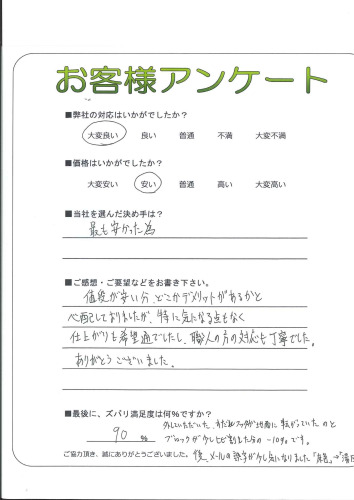 お客様アンケート
■弊社の対応はいかがでしたか？
大変良い 良い 普通 不満 大変不満
■価格はいかがでしたか？
大変安い 安い 普通 高い 大変高い
■当社を選んだ決め手は？
最も安かった為
■ご感想・ご要望などをお書き下さい。
値段が安い分、どこかデメリットがあるかと
心配しておりましたが、特に気になる点もなく
仕上がりも希望通でしたし、職人の方の対応も丁寧でした。
ありがとうございました。
■最後に、ズバリ満足度は何％ですか？
外していただいた、 ブロックが地面に転がっていたのと
90 % ブロックが少しヒビ割れした分の -10%です。
ご協力頂き、誠にありがとうございました。 後、メールの漢字が少し気になりました